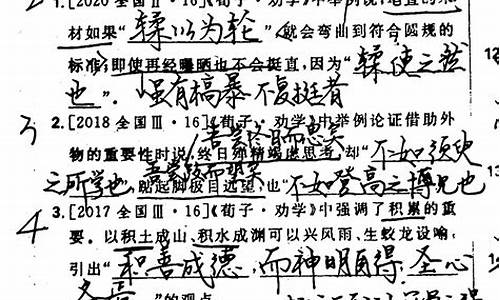 1.[2020 全国Ⅱ·16]《荀子·劝学》中举例说,
材如果“輮以为轮”,就会弯曲到符合圆规的
标准;即使再经曝晒也不会挺直,因为“輮使之然
也”. 虽有槁暴 不复挺者
3 2.[2018 全国Ⅲ·16]《荀子·劝学》中举例论证借助外
吾尝终日而思矣
物的重要性时说,终日殚精竭虑思考,却“不如须臾
之所学也,跳起脚极目远望,也“不如登高之博见也
吾尝跂而望矣
4 3.[2017 全国Ⅲ·16]《荀子·劝学》中强调了积累的重
要。以积土成山、积水成渊可以兴风雨、生蛟龙设喻,
引出“积善成德,而神明自得,圣心
备焉”的观点